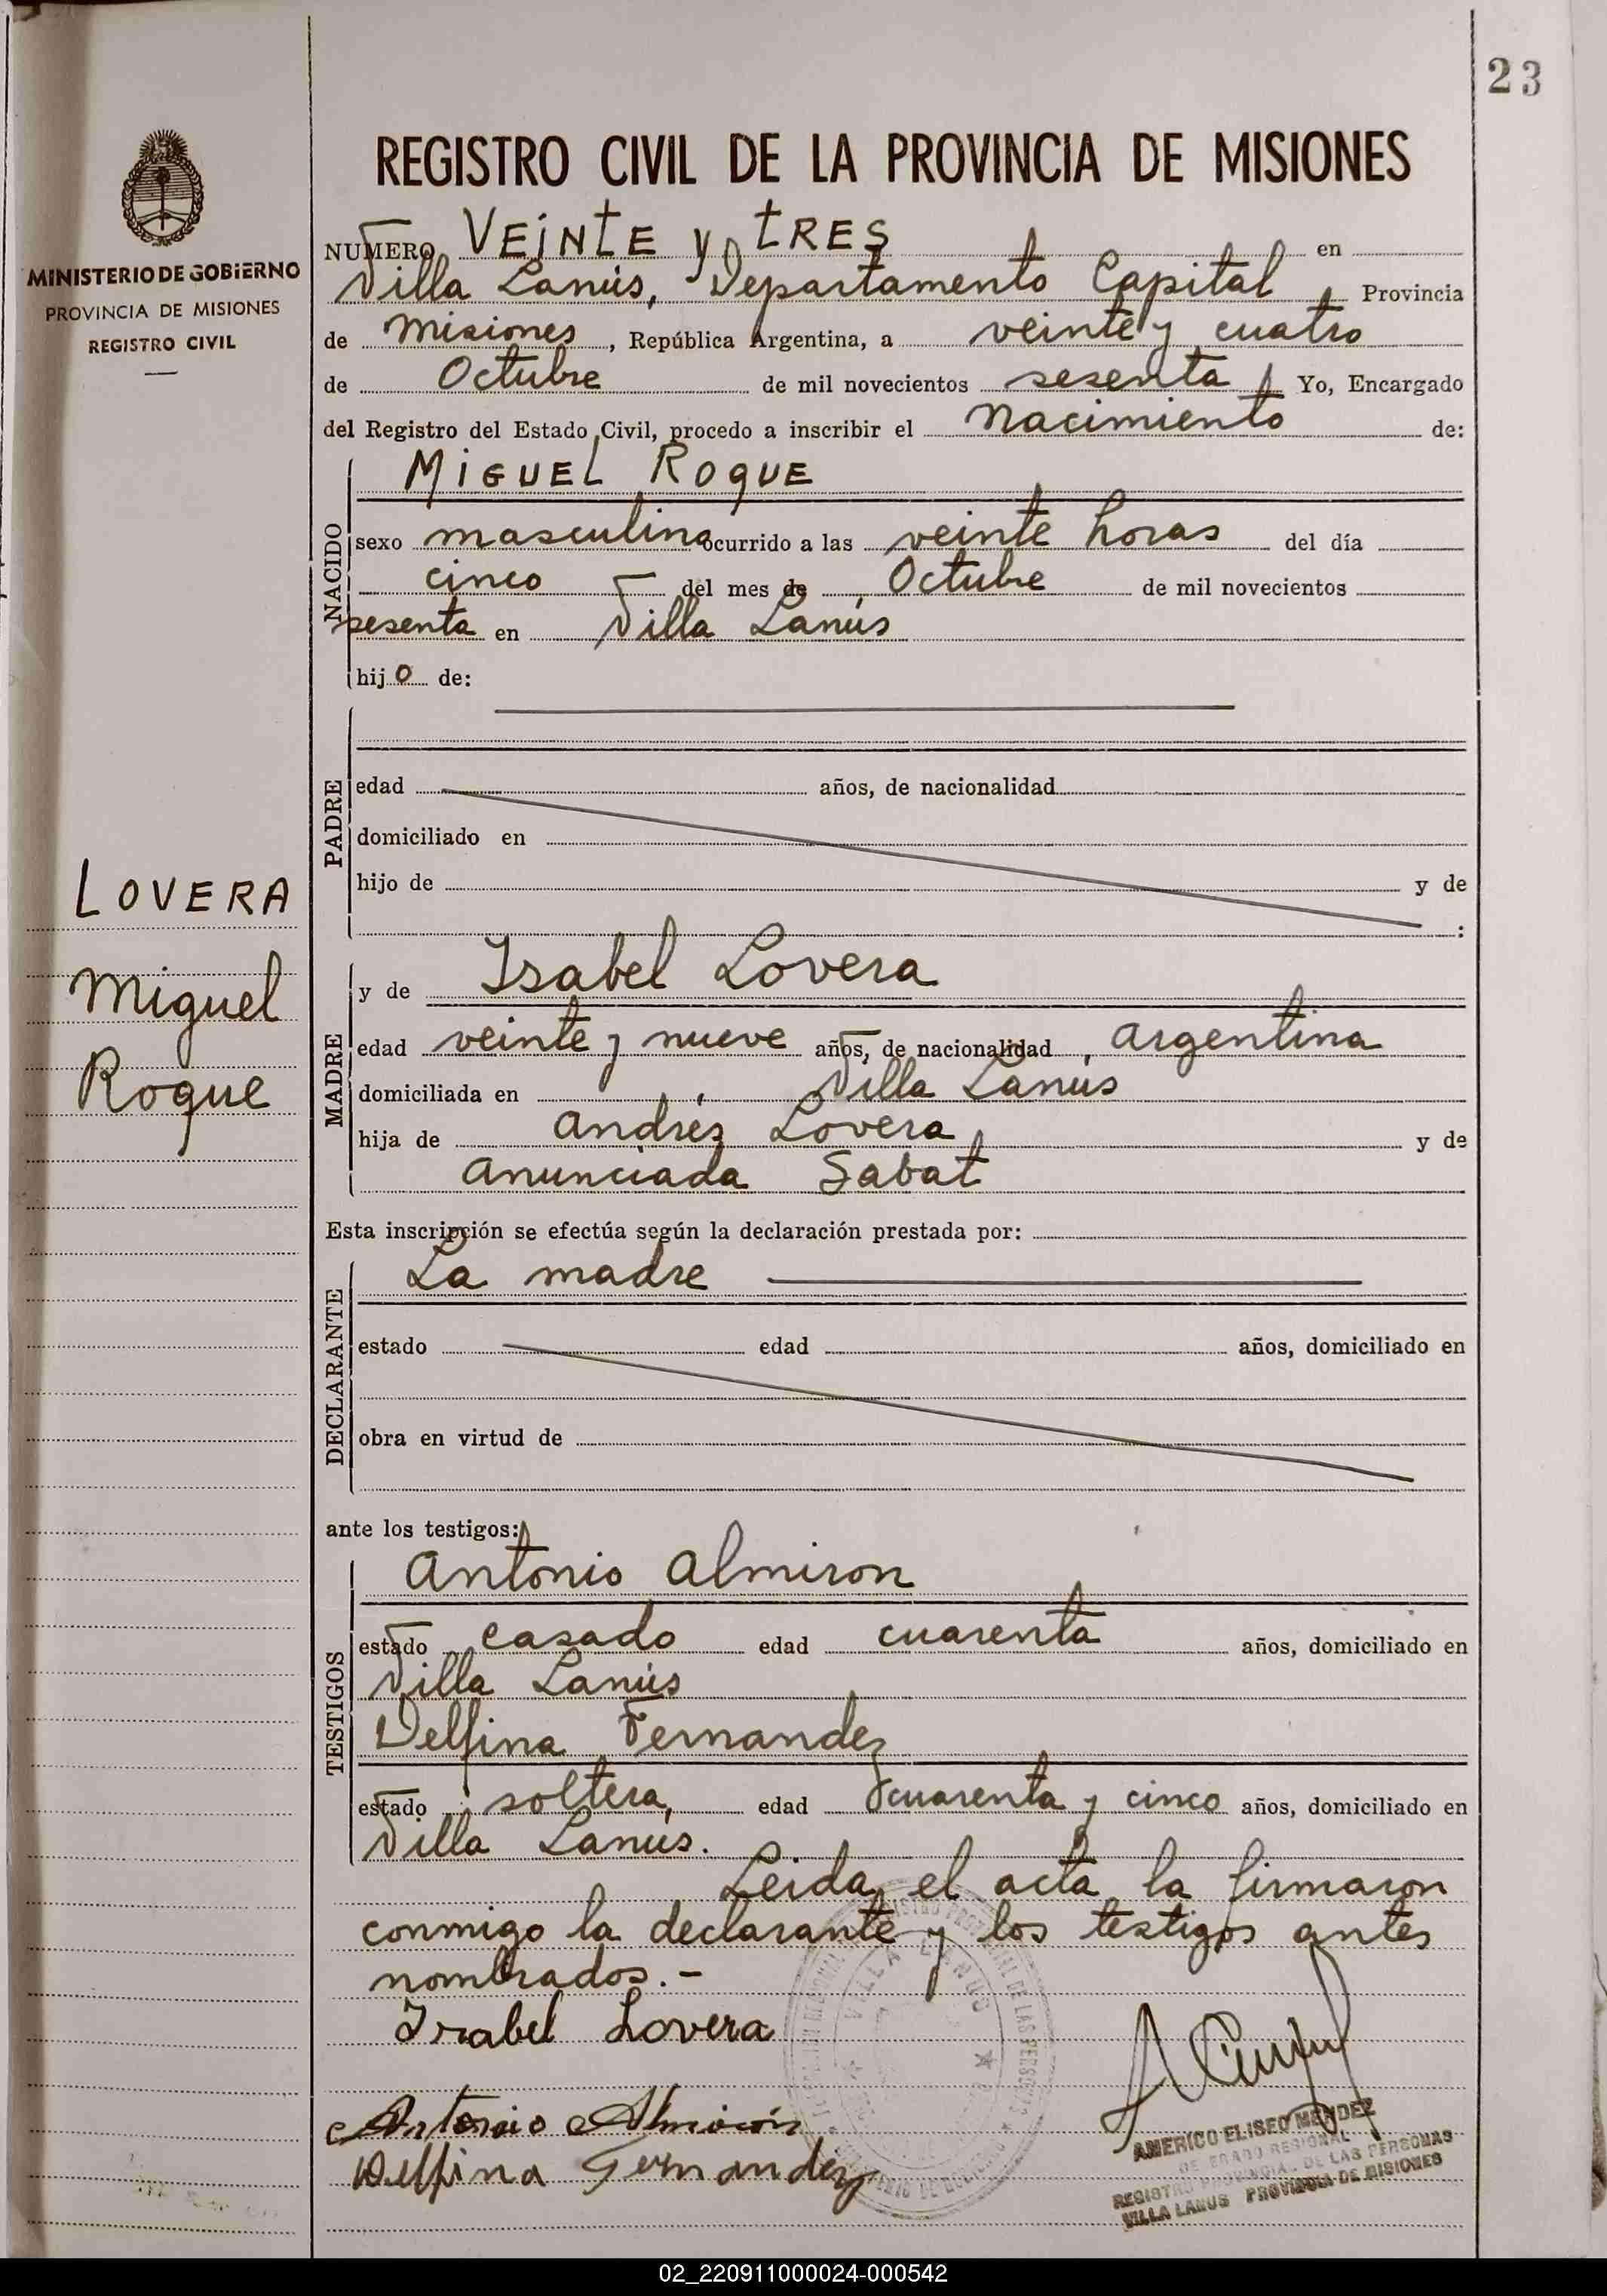 23
MINISTERIO DE GOBIERNO
PROVINCIA DE MISIONES
REGISTRO CIVIL
REGISTRO CIVIL DE LA PROVINCIA DE MISIONES
NUMERO VEINTE y TRES en
Villa Lanús, Departamento Capital, Provincia
de Misiones, República Argentina, a veinte y cuatro
de Octubre de mil novecientos sesenta, Yo, Encargado
del Registro del Estado Civil, procedo a inscribir el Nacimiento de:
NACIDO
MIGUEL ROQUE
sexo masculino ocurrido a las veinte horas del día
cinco del mes de Octubre de mil novecientos
sesenta en Villa Lanús
hijo de:
PADRE
edad años, de nacionalidad
domiciliado en
hijo de y de
:
LOVERA
Miguel
Roque
MADRE
y de Isabel Lovera
edad veinte y nueve años, de nacionalidad Argentina
domiciliada en Villa Lanús
hija de Andrés Lovera y de
Anunciada Sabat
Esta inscripción se efectúa según la declaración prestada por:
DECLARANTE
La madre
estado edad años, domiciliado en
obra en virtud de
ante los testigos:
TESTIGOS
Antonio Almiron
estado casado edad cuarenta años, domiciliado en
Villa Lanús
Delfina Fernandez
estado soltera, edad cuarenta y cinco años, domiciliado en
Villa Lanús.
Leida el acta la firmaron
conmigo la declarante y los testigos antes
nombrados.-
Isabel Lovera
Antonio Almirón
Delfina Fernandez
VILLA LANUS
AMERICO ELISEO MENDEZ
REGISTRO PROVINCIAL DE LAS PERSONAS
VILLA LANUS PROVINCIA DE MISIONES
02_220911000024-000542